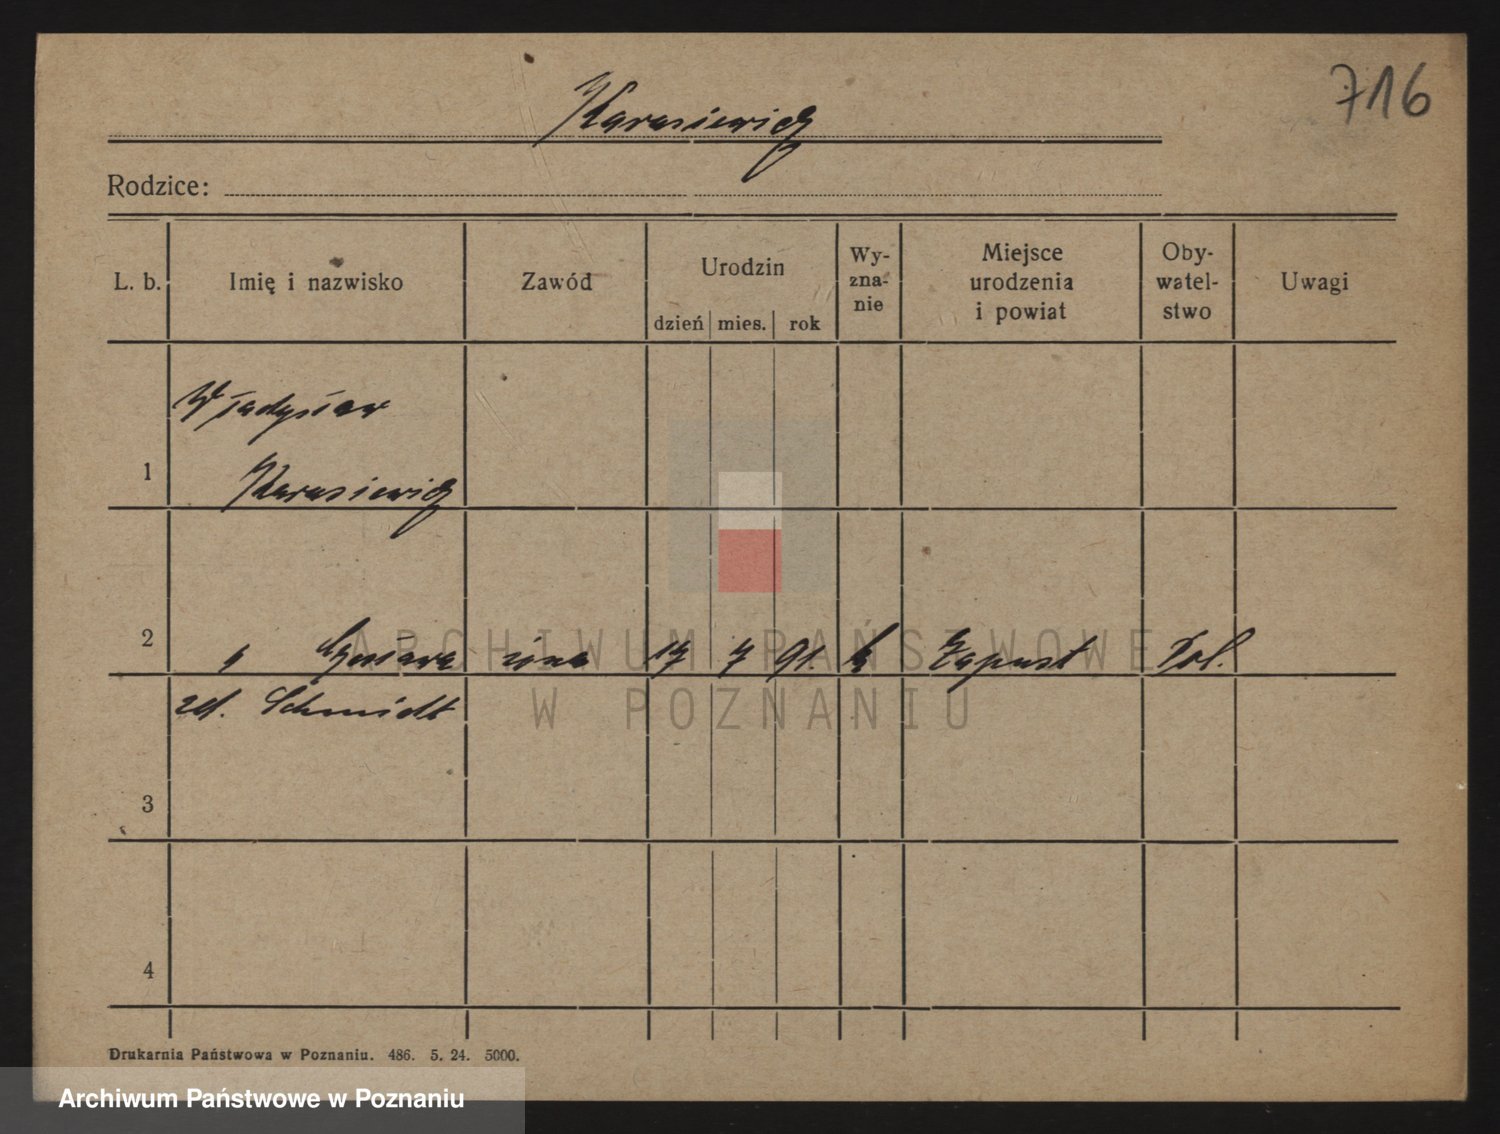 716
Karasiewicz
Rodzice:
L. b. Imię i nazwisko Zawód Urodzin dzień mies. rok Wy-zna-nie Miejsce urodzenia i powiat Oby-watel-stwo Uwagi
Władysław
1 Karasiewicz
2 " żona 17 7 91. k Zapust Pol.
zd. Schmidt
3
4
Drukarnia Państwowa w Poznaniu. 486. 5. 24. 5000.
ARCHIWUM PAŃSTWOWE
W POZNANIU
Archiwum Państwowe w Poznaniu